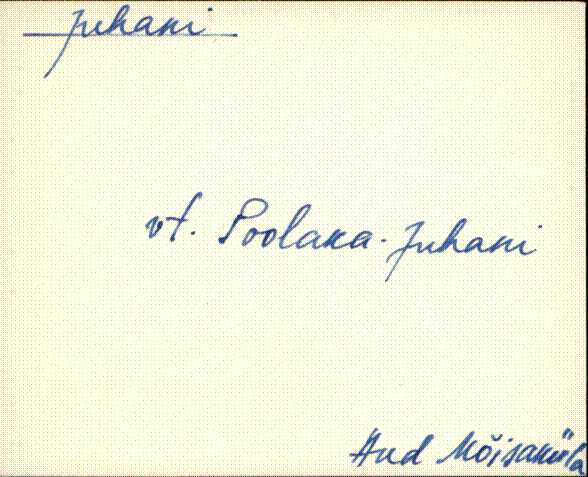 Juhani
vt. Poolaka-Juhani
Aud Mõisaküla